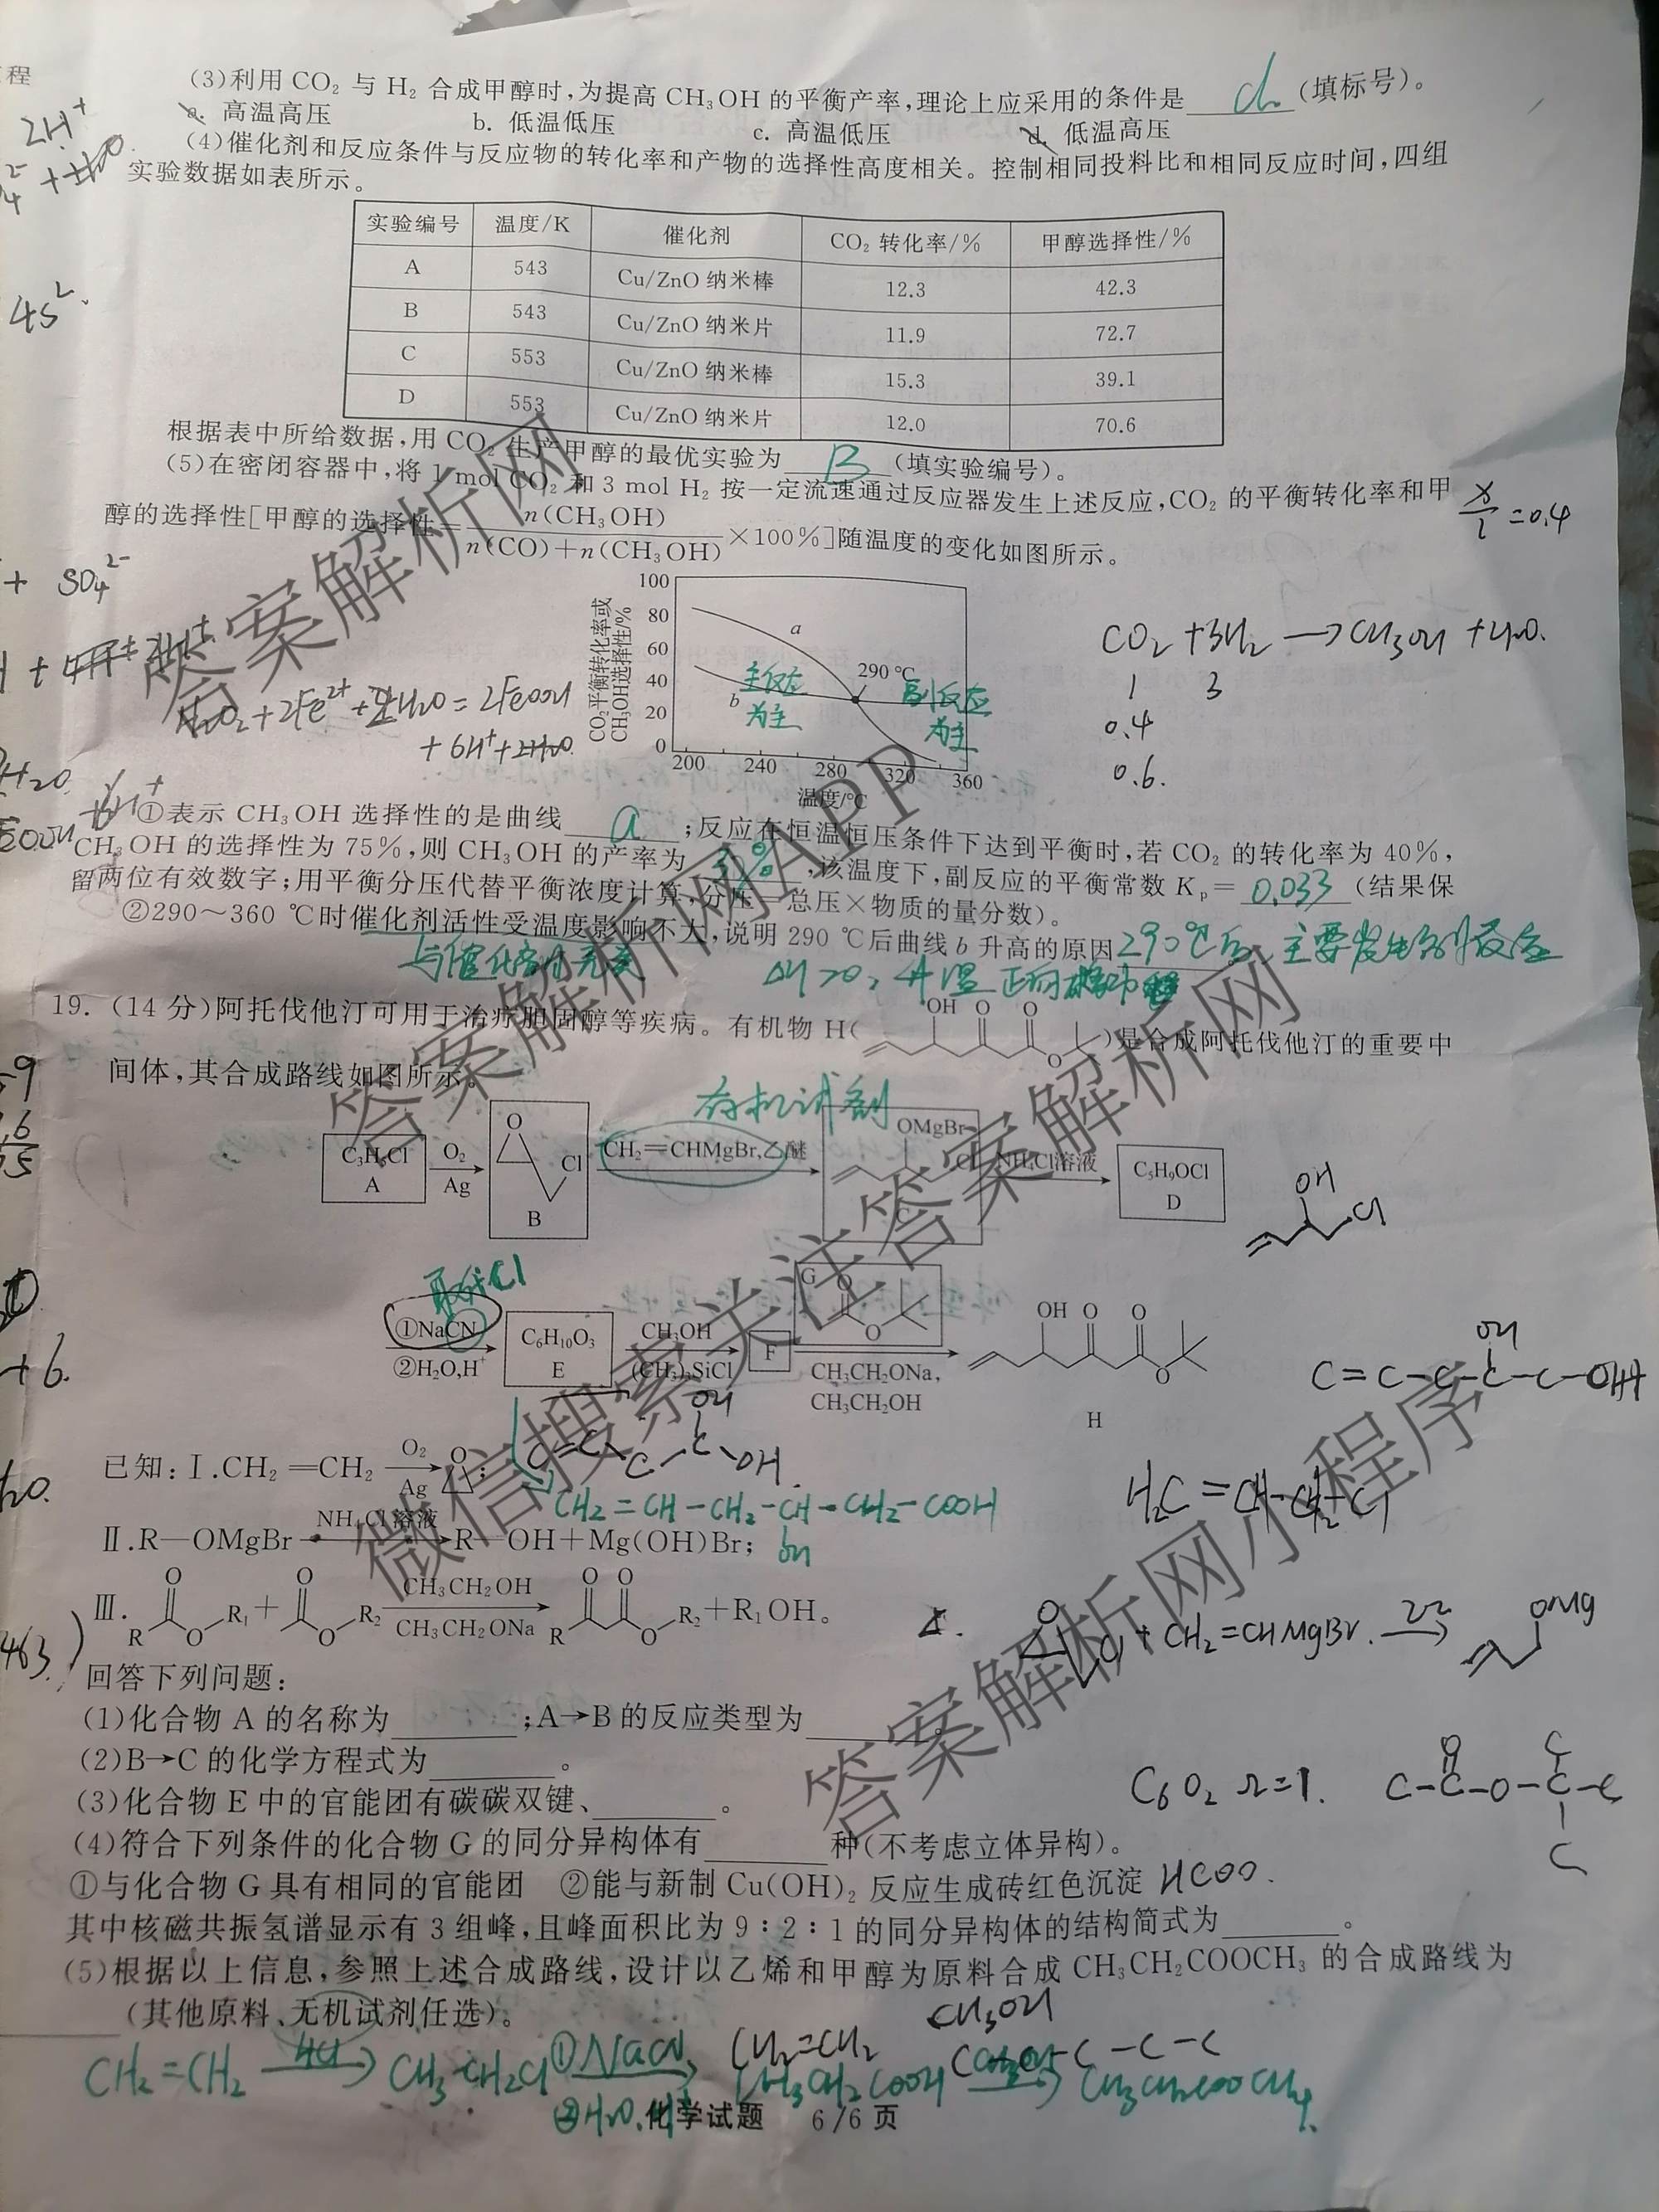 程
(3)利用 CO₂ 与 H₂ 合成甲醇时,为提高 CH₃OH 的平衡产率,理论上应采用的条件是 d (填标号)。
a. 高温高压 b. 低温低压 c. 高温低压 d. 低温高压
2H⁺
(4)催化剂和反应条件与反应物的转化率和产物的选择性高度相关。控制相同投料比和相同反应时间,四组
实验数据如表所示。
实验编号 温度/K 催化剂 CO₂ 转化率/% 甲醇选择性/%
A 543 Cu/ZnO 纳米棒 12.3 42.3
B 543 Cu/ZnO 纳米片 11.9 72.7
C 553 Cu/ZnO 纳米棒 15.3 39.1
D 553 Cu/ZnO 纳米片 12.0 70.6
4S².
根据表中所给数据,用 CO₂ 生产甲醇的最优实验为 B (填实验编号)。
(5)在密闭容器中,将 1 mol CO₂ 和 3 mol H₂ 按一定流速通过反应器发生上述反应,CO₂ 的平衡转化率和甲
醇的选择性[甲醇的选择性=n(CH₃OH)/n(CO)+n(CH₃OH)×100%]随温度的变化如图所示。
x/1=0.4
+ SO₄²⁻
CO₂平衡转化率或
CH₃OH选择性/%
100
80
60
40
20
0
200 240 280 320 360
温度/℃
a
b
290 ℃
主反应
为主
副反应
为主
CO₂+3H₂→CH₃OH+H₂O.
1 3
0.4
0.6.
H₂O₂+2Fe²⁺+2H₂O=2FeOOH
①表示 CH₃OH 选择性的是曲线 a ;反应在恒温恒压条件下达到平衡时,若 CO₂ 的转化率为 40%,
CH₃OH 的选择性为 75%,则 CH₃OH 的产率为 ,该温度下,副反应的平衡常数 Kₚ= 0.033 (结果保
留两位有效数字;用平衡分压代替平衡浓度计算,分压=总压×物质的量分数)。
②290～360 ℃时催化剂活性受温度影响不大,说明 290 ℃后曲线 b 升高的原因 290℃后,主要发生副反应
与催化剂无关 ΔH>0,升温 正向移动
19. (14 分)阿托伐他汀可用于治疗胆固醇等疾病。有机物 H( OH O O O )是合成阿托伐他汀的重要中
间体,其合成路线如图所示。
有机试剂
C₃H₅Cl A O₂ Ag O Cl B CH₂=CHMgBr,乙醚 OMgBr Cl C NH₄Cl溶液 C₅H₉OCl D
OH Cl
取代Cl
①NaCN ②H₂O,H⁺ C₆H₁₀O₃ E CH₃OH (CH₃)₃SiCl F G O O CH₃CH₂ONa, CH₃CH₂OH OH O O O H
C=C-C-C-C-OH
OH
已知:Ⅰ.CH₂=CH₂ O₂ Ag O ;
CH₂=CH-CH₂-CH-CH₂-COOH
OH
Ⅱ.R—OMgBr NH₄Cl 溶液 R—OH+Mg(OH)Br;
Ⅲ. R O O R₁+ O O R₂ CH₃CH₂OH CH₃CH₂ONa R O O O R₂+R₁OH。
Cl+CH₂=CHMgBr. 乙醚 OMg
回答下列问题:
(1)化合物 A 的名称为 ;A→B 的反应类型为 。
(2)B→C 的化学方程式为 。
(3)化合物 E 中的官能团有碳碳双键、 。
C₆O₂ Ω=1.
(4)符合下列条件的化合物 G 的同分异构体有 种(不考虑立体异构)。
①与化合物 G 具有相同的官能团 ②能与新制 Cu(OH)₂ 反应生成砖红色沉淀 HCOO.
其中核磁共振氢谱显示有 3 组峰,且峰面积比为 9∶2∶1 的同分异构体的结构简式为 。
(5)根据以上信息,参照上述合成路线,设计以乙烯和甲醇为原料合成 CH₃CH₂COOCH₃ 的合成路线为
(其他原料、无机试剂任选)。
CH₃OH
CH₂=CH₂
CH₂=CH₂ HCl CH₃-CH₂Cl ①NaCN ②H₂O,H⁺ CH₃CH₂COOH CH₃OH CH₃CH₂COOCH₃
化学试题 6/6 页
答案解析网
答案解析网APP
微信搜索关注答案解析网
答案解析网小程序